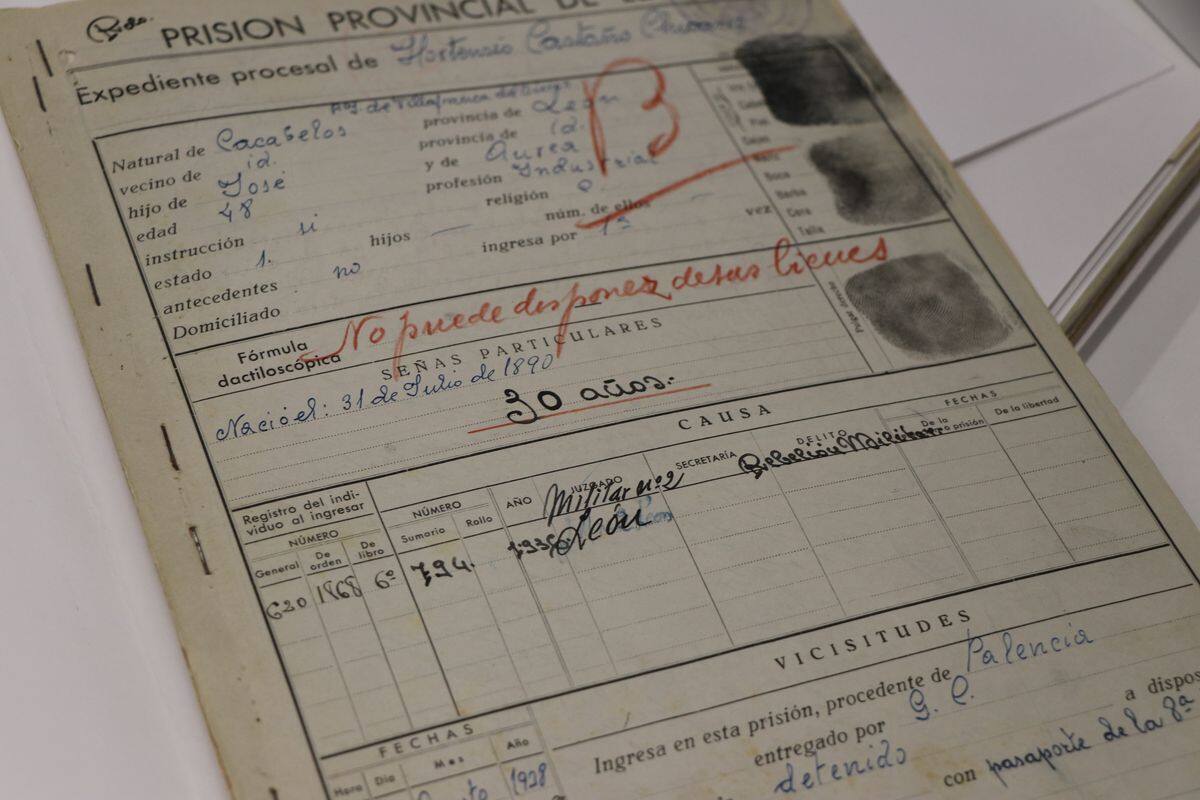 PRISION PROVINCIAL DE
Expediente procesal de Hortensio Castaño
Natural de Cacabelos provincia de León
vecino de id. provincia de id.
hijo de José y de Aurea
edad 48 profesión Industrial
instrucción si religión
estado 1. hijos — núm. de ellos —
antecedentes no ingresa por 1ª vez
Domiciliado
B
No puede disponer de sus bienes
Fórmula
dactiloscópica
SEÑAS PARTICULARES
Nació el: 31 de Julio de 1890
30 años.
Boca
Barba
Cara
Talla
Pulgar derecho
CAUSA
Registro del indi-
viduo al ingresar
NÚMERO
General De orden De libro
NÚMERO
Sumario Rollo
AÑO
JUZGADO
SECRETARÍA
DELITO
FECHAS
De la prisión De la libertad
620 1868 6º 794. Militar nº 2 Rebelión Militar
León
VICISITUDES
FECHAS
Hora Día Mes Año
1938
Ingresa en esta prisión, procedente de Palencia
entregado por G. C.
detenido a dispos
con pasaporte de la 8ª